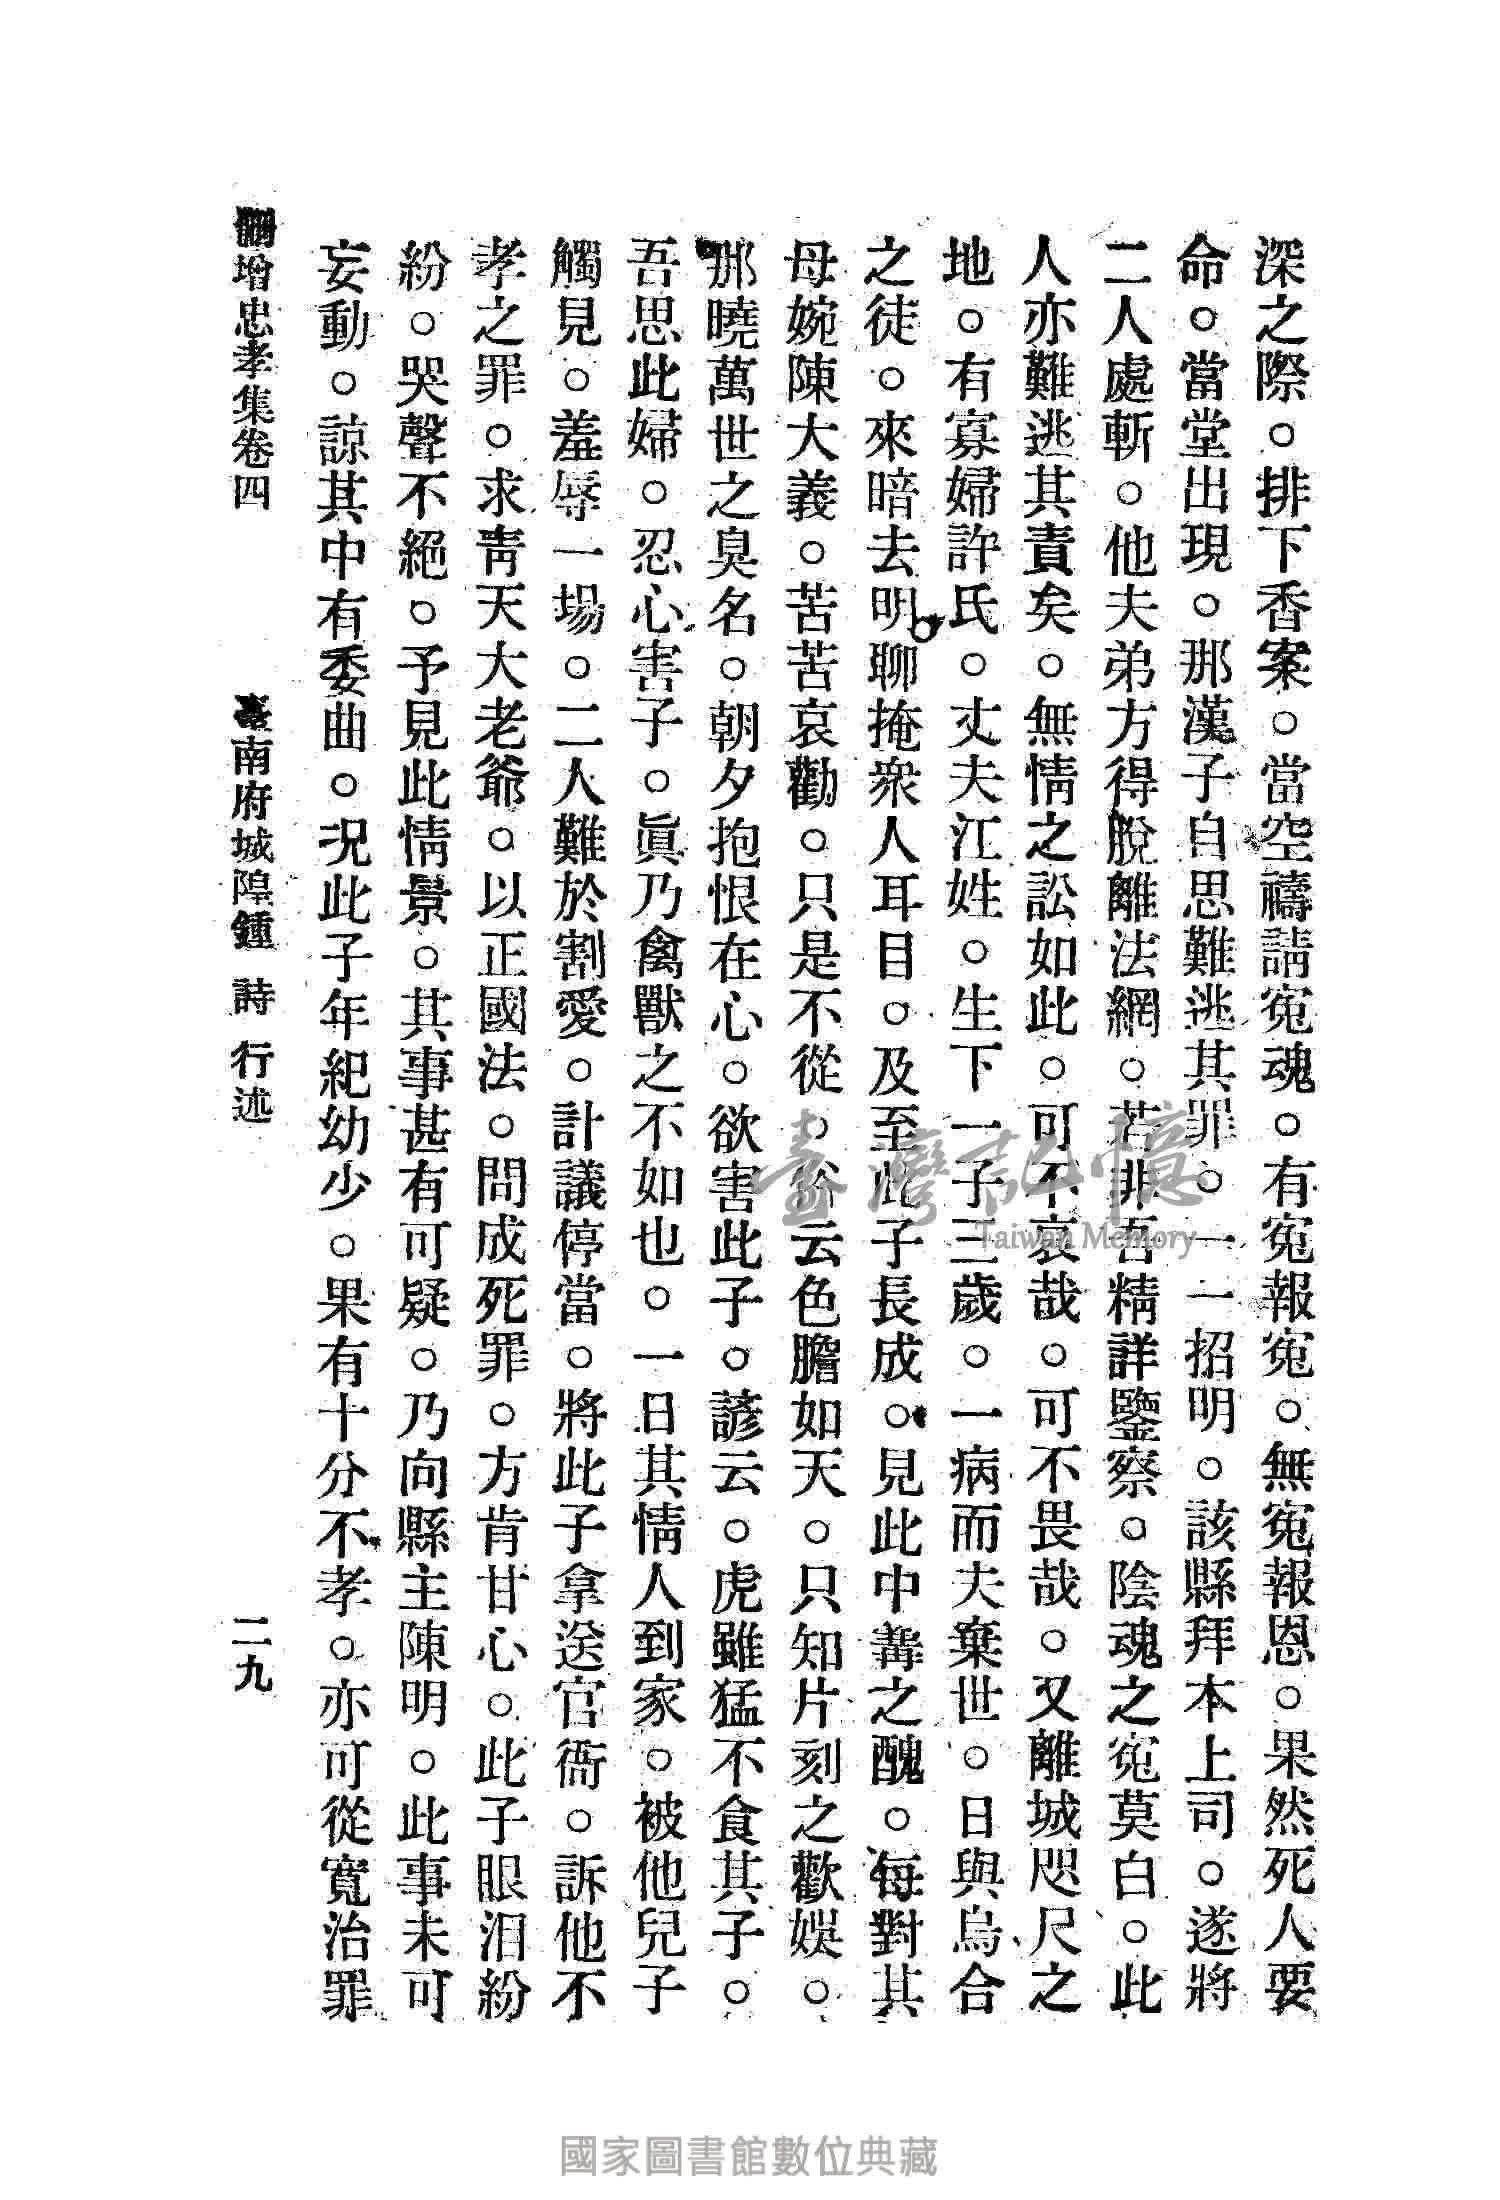 深之際。排下香案。當空禱請寃魂。有寃報寃。無寃報恩。果然死人要
命。當堂出現。那漢子自思難逃其罪。一一招明。該縣拜本上司。遂將
二人處斬。他夫弟方得脫離法網。若非吾精詳鑒察。陰魂之寃莫白。此
人亦難逃其責矣。無情之訟如此。可不哀哉。可不畏哉。又離城咫尺之
地。有寡婦許氏。丈夫江姓。生下一子三歲。一病而夫棄世。日與烏合
之徒。來暗去明聊掩衆人耳目。及至此子長成。見此中冓之醜。每對其
母婉陳大義。苦苦哀勸。只是不從。俗云色膽如天。只知片刻之歡娛。
那曉萬世之臭名。朝夕抱恨在心。欲害此子。諺云。虎雖猛不食其子。
吾思此婦。忍心害子。眞乃禽獸之不如也。一日其情人到家。被他兒子
觸見。羞辱一場。二人難於割愛。計議停當。將此子拿送官衙。訴他不
孝之罪。求靑天大老爺。以正國法。問成死罪。方肯甘心。此子眼泪紛
紛。哭聲不絕。予見此情景。其事甚有可疑。乃向縣主陳明。此事未可
妄動。諒其中有委曲。况此子年紀幼少。果有十分不孝。亦可從寬治罪
增忠孝集卷四　臺南府城隍鍾　詩　行述　二九
臺灣記憶
Taiwan Memory
國家圖書館數位典藏